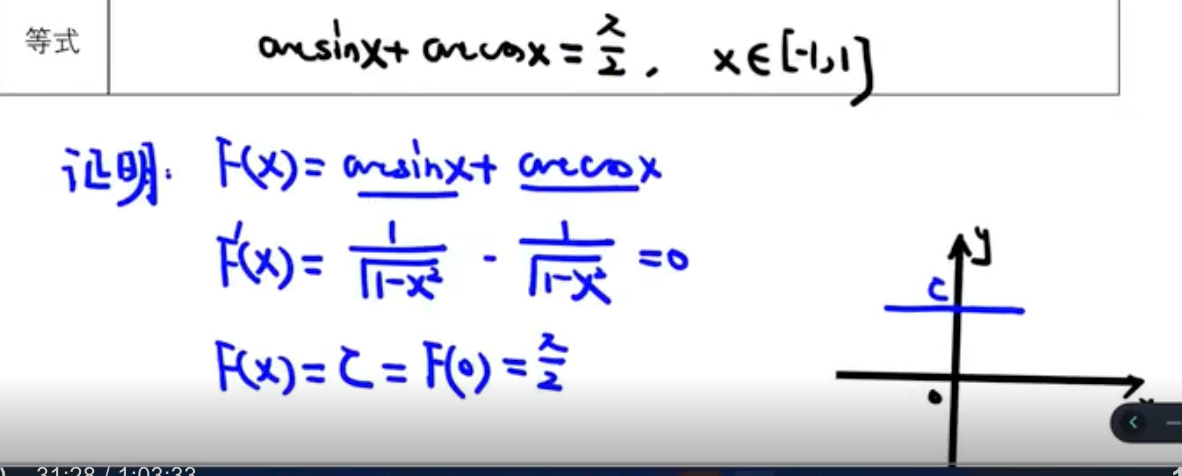 等式
arcsinx + arccosx = π/2, x∈[-1,1]
证明: F(x) = arcsinx + arccosx
F'(x) = 1/√(1-x²) - 1/√(1-x²) = 0
y
C
F(x) = C = F(0) = π/2
0
31:28 / 1:03:33